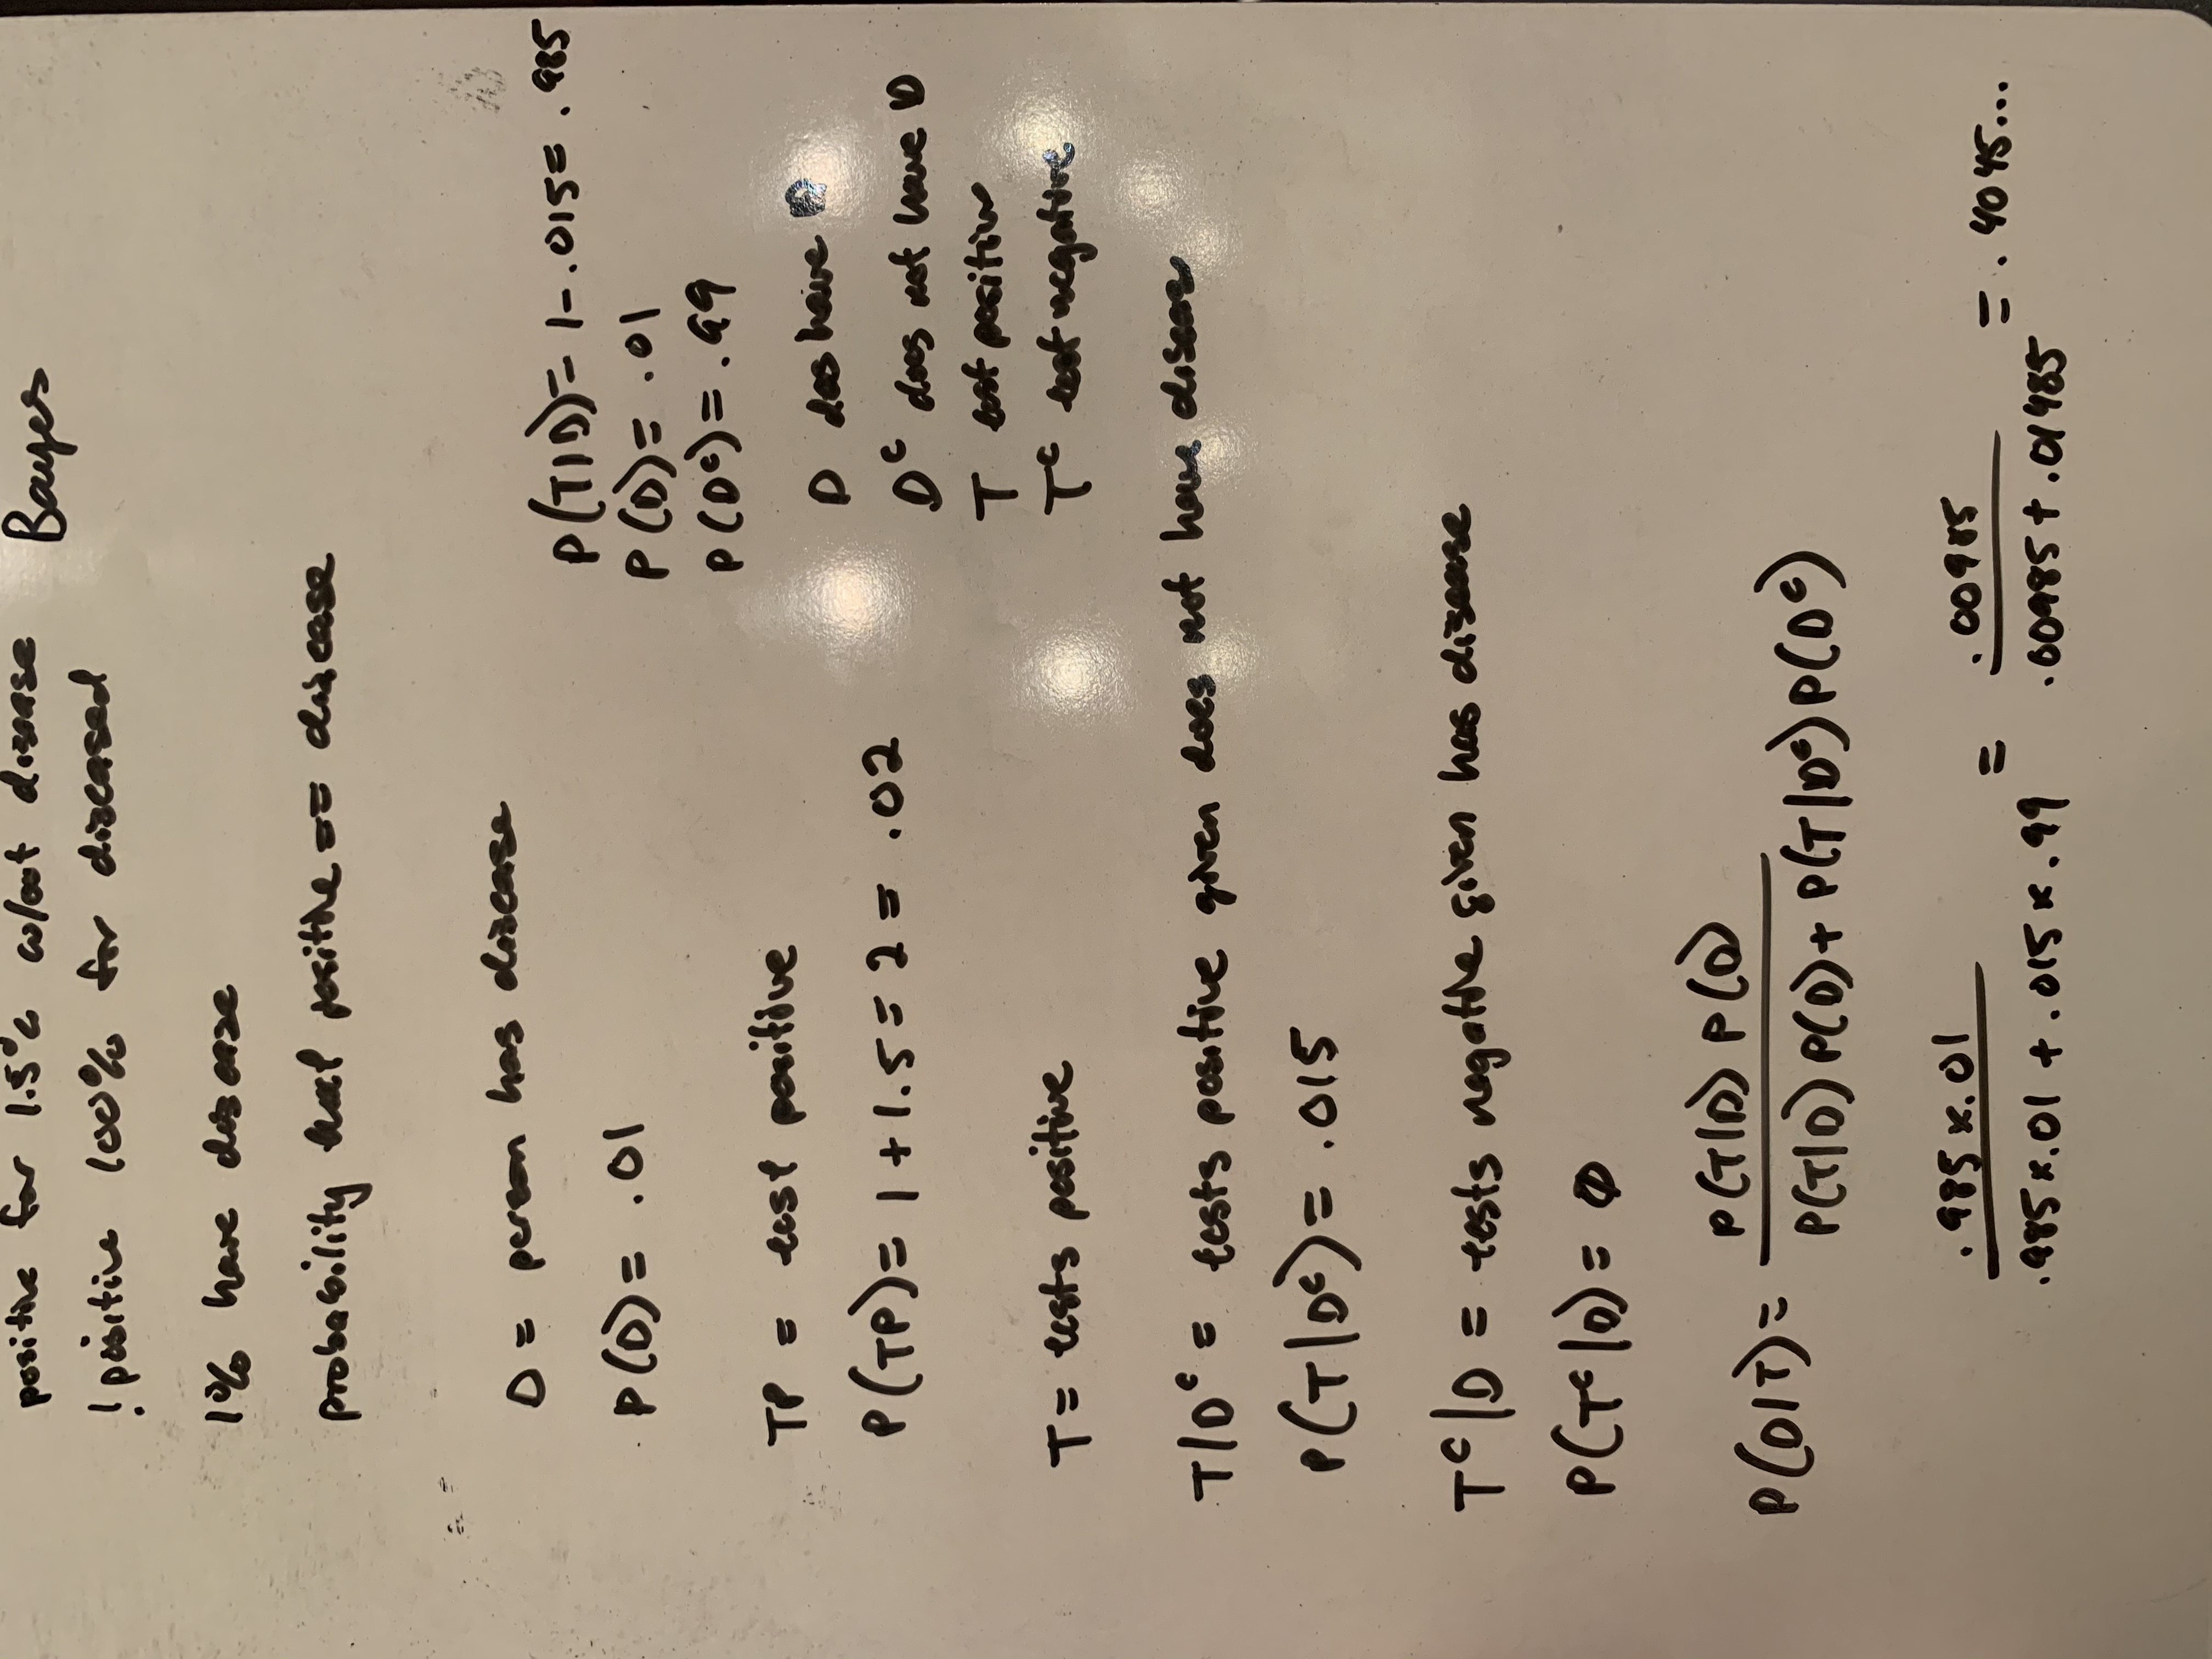 positive for 1.5% w/out disease
Bayes
! positive 100% for diseased
1% have disease
probability that positive == disease
D = person has disease
P(D) = .01
P(T|D) = 1-.015 = .985
P(D) = .01
P(Dᶜ) = .99
TP = test positive
P(TP) = 1 + 1.5 = 2 = .02
D does have
Dᶜ does not have D
T test positive
Tᶜ test negative
T = tests positive
T|Dᶜ = tests positive given does not have disease
P(T|Dᶜ) = .015
Tᶜ|D = tests negative given has disease
P(Tᶜ|D) = ∅
P(D|T) = P(T|D) P(D)
P(T|D) P(D) + P(T|Dᶜ) P(Dᶜ)
.985 x .01 = .00985 = .4045...
.985 x .01 + .015 x .99 .00985 + .01485